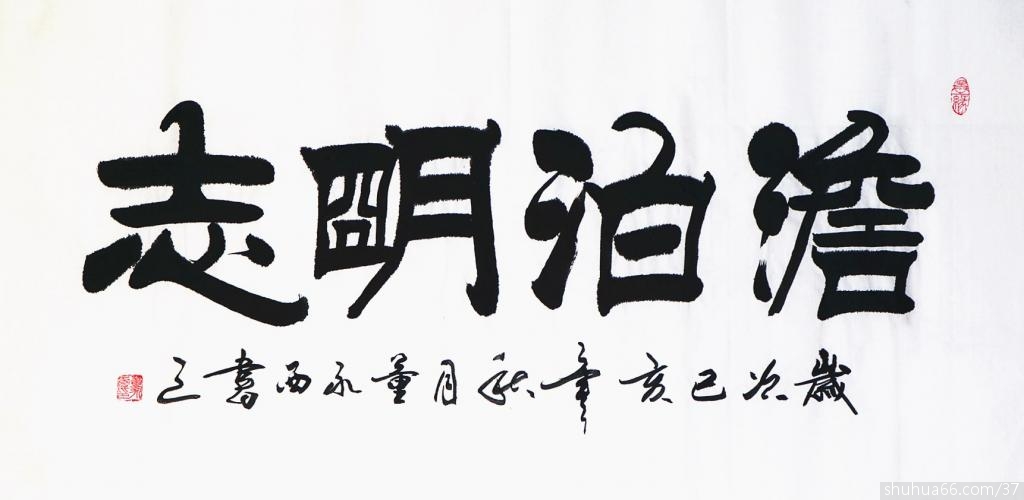 澹泊明志
歲次己亥年秋月董永西書之
shuhua66.com/37